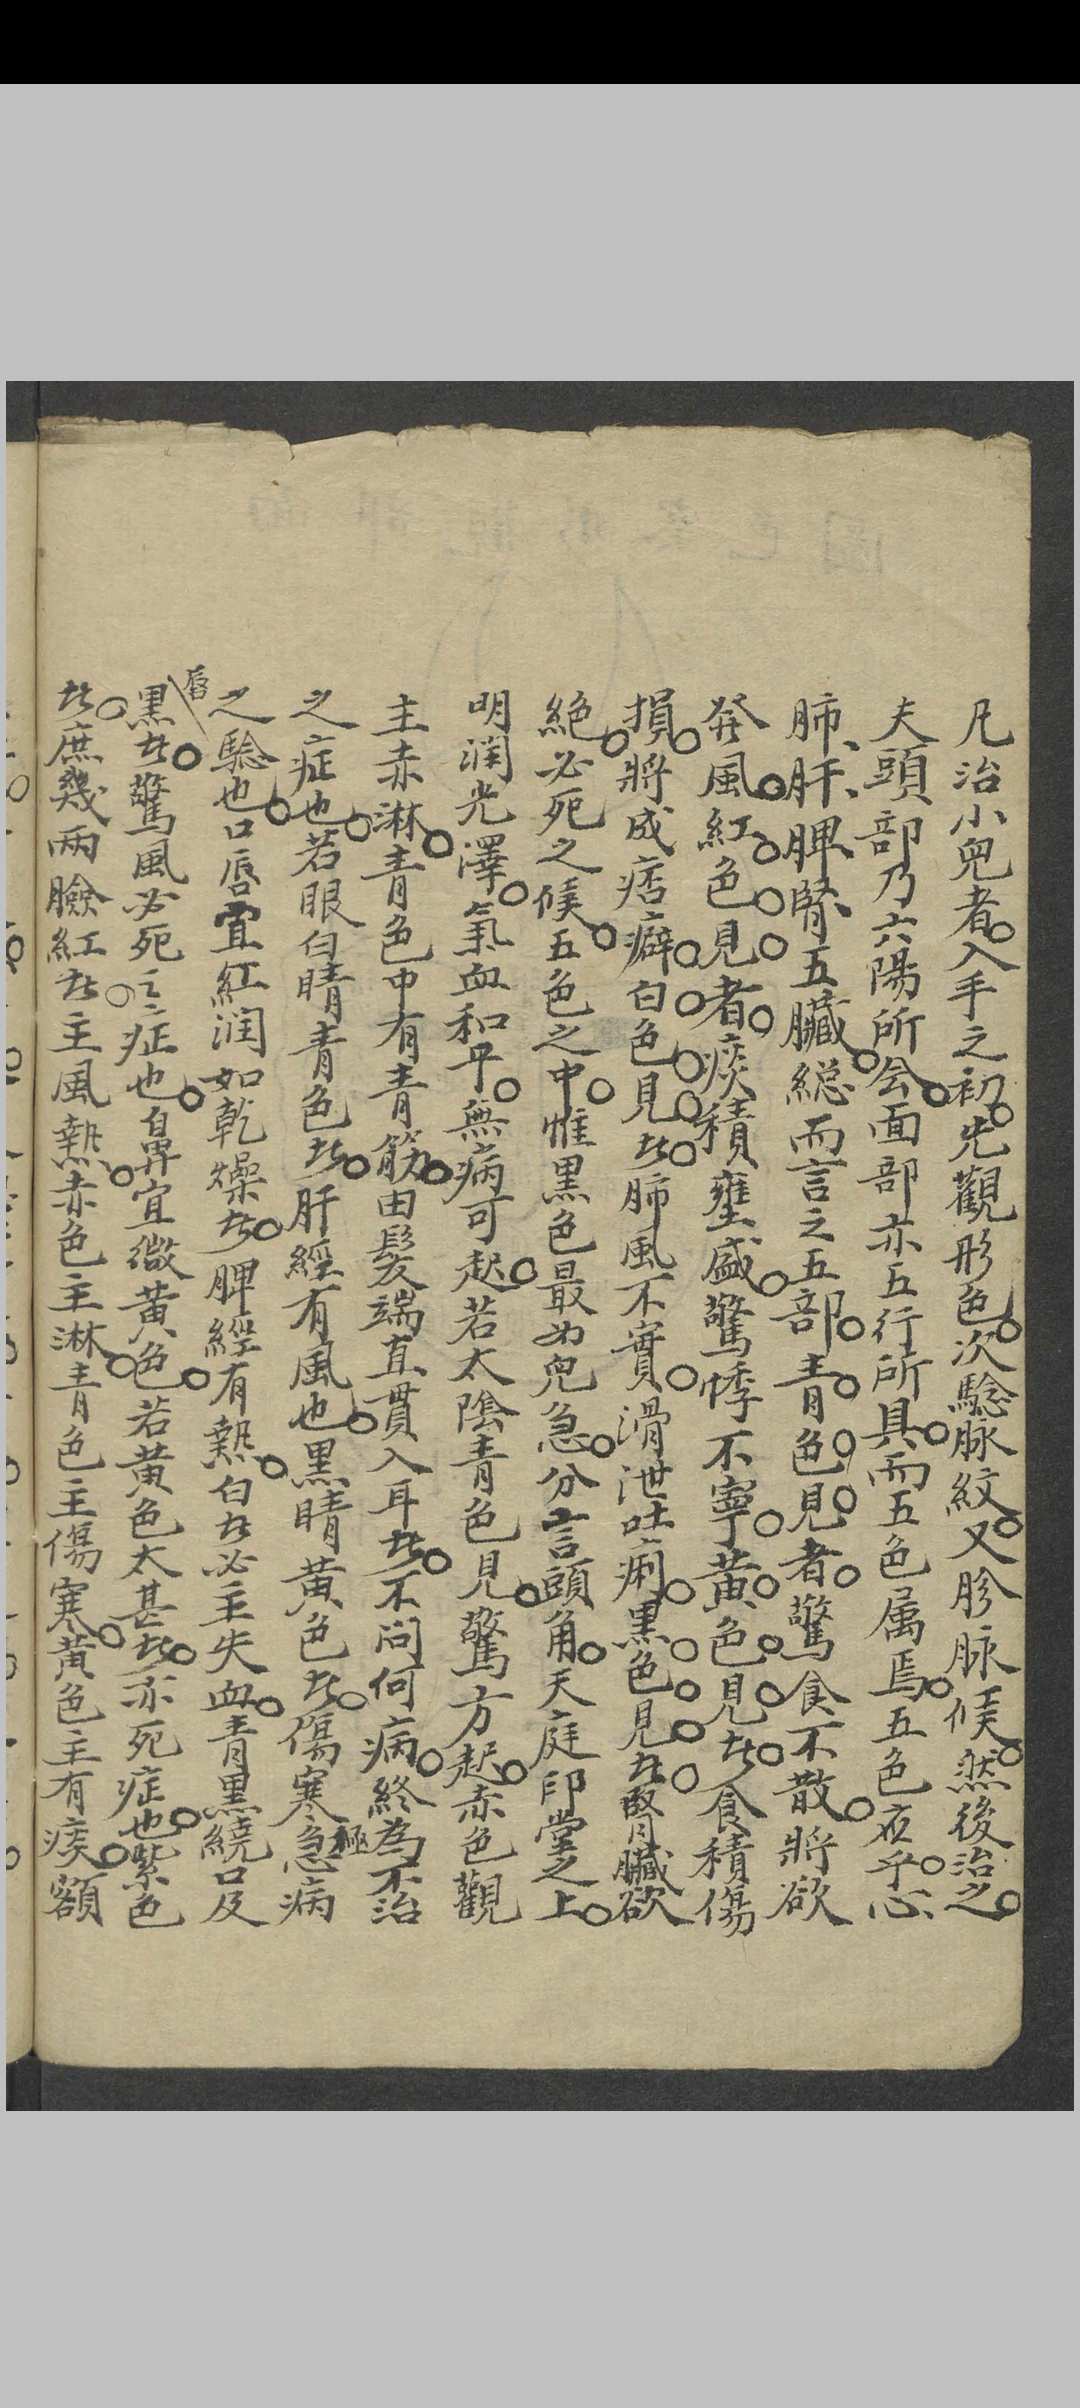 凡治小兒者入手之初先觀形色次騐脉紋又胗脉候然後治之
夫頭部乃六陽所会面部亦五行所具而五色属焉五色夜乎心、
肺、肝、脾、腎五臟縂而言之五部青色見者驚食不散將欲
發風紅色見者痰積壅盛驚悸不寧黃色見者食積傷
損將成痞癖白色見者肺風不實滑泄吐痢黒色見者腎臟欲
絕必死之候五色之中惟黒色最為兒急分言頭角天庭印堂之上
明潤光澤氣血和平無病可起若太陰青色見驚方起赤色觀
主赤淋青色中有青筋由髮端直貫入耳者不问何病終為不治
之症也若眼白睛青色者肝經有風也黒睛黃色者傷寒極急病
之騐也口唇宜紅润如乾燥者脾經有熱白者必主失血青黒繞口及
唇黒者驚風必死之症也鼻宜微黃色若黃色太甚者亦死症也紫色
者庶幾兩臉紅者主風熱赤色主淋青色主傷寒黃色主有痰額